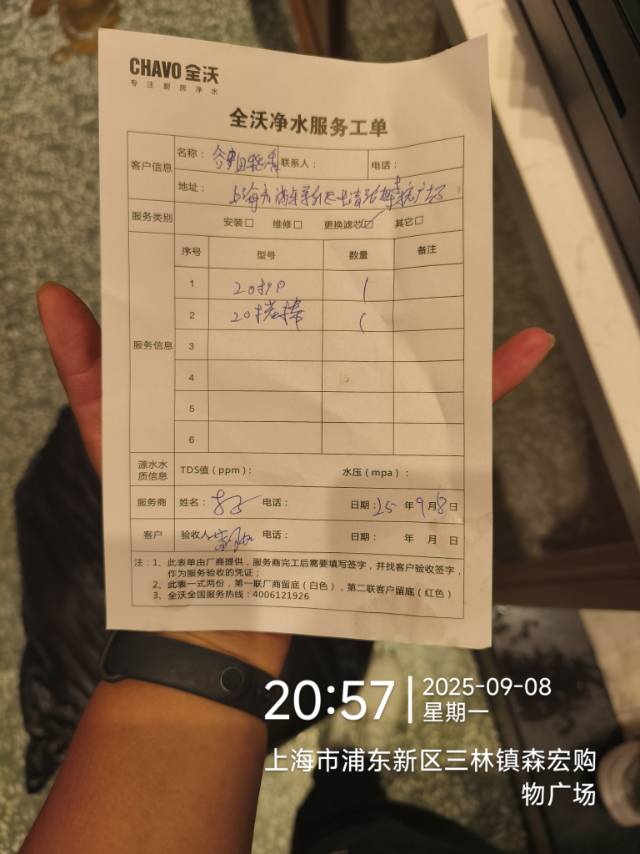 CHAVO 全沃
专注厨房净水
全沃净水服务工单
客户信息 名称： 联系人： 电话：
地址： 上海市浦东新区
服务类别 安装□ 维修□ 更换滤芯☑ 其它□
服务信息 序号 型号 数量 备注
1 20寸PP 1
2 20寸炭棒 1
3
4
5
6
源水水质信息 TDS值（ppm）： 水压（mpa）：
服务商 姓名： 电话： 日期：25 年 9 月 8 日
客户 验收人 电话： 日期： 年 月 日
注：1、此表单由厂商提供，服务商完工后需要填写签字，并找客户验收签字，
作为服务验收的凭证；
2、此表一式两份，第一联厂商留底（白色），第二联客户留底（红色）
3、全沃全国服务热线：4006121926
20:57 2025-09-08
星期一
上海市浦东新区三林镇森宏购
物广场